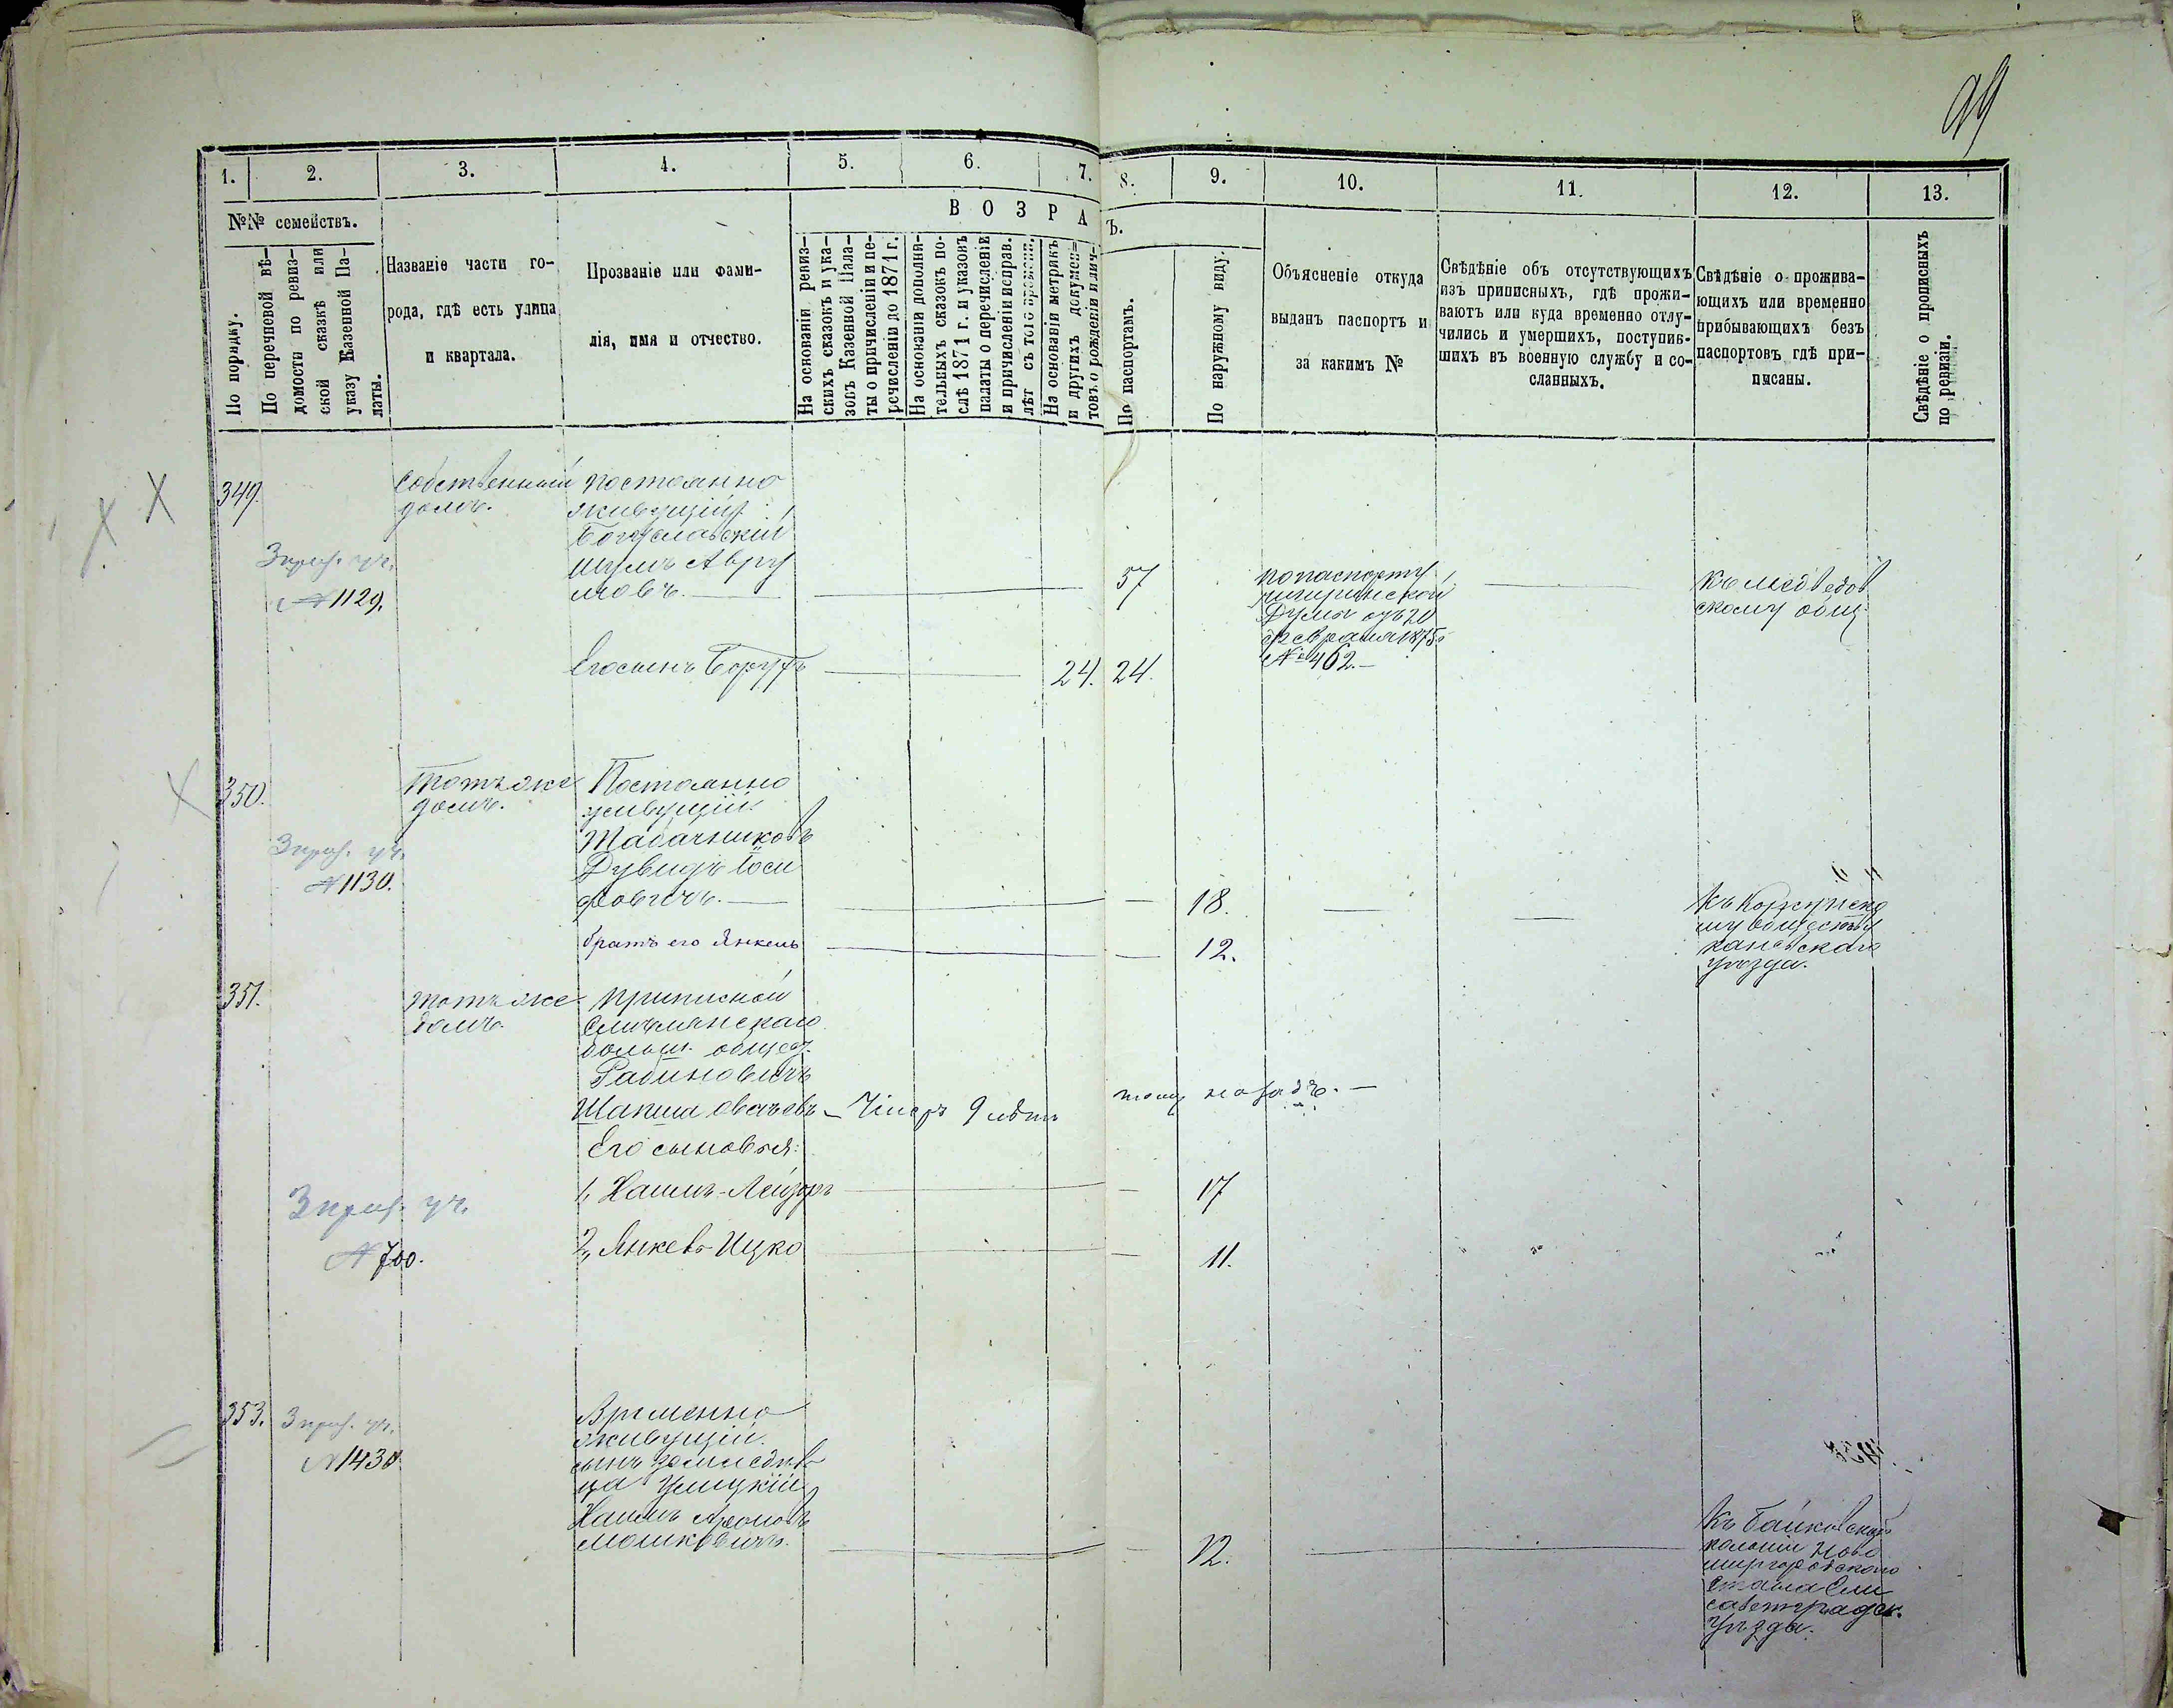 99
1. 2. 3. 4. 5. 6. 7. 8. 9. 10. 11. 12. 13.
№№ семействъ.
По порядку.
По перечневой вѣ-
домости по ревиз-
ской сказкѣ или
указу Казенной Па-
латы.
Названіе части го-
рода, гдѣ есть улица
и квартала.
Прозваніе или фами-
лія, имя и отчество.
В О З Р А
Ъ.
На основаніи ревиз-
скихъ сказокъ и ука-
зовъ Казенной Пала-
ты о причисленіи и пе-
речисленіи до 1871 г.
На основаніи дополни-
тельныхъ сказокъ по-
слѣ 1871 г. и указовъ
палаты о перечисленіи
и причисленіи исправ.
лѣт съ того времени.
На основаніи метрикъ
и другихъ докумен=
товъ о рожденіи и лич-
По паспортамъ.
По наружному виду.
Объясненіе откуда
выданъ паспортъ и
за какимъ №
Свѣдѣніе объ отсутствующихъ
изъ приписныхъ, гдѣ прожи-
ваютъ или куда временно отлу-
чились и умершихъ, поступив-
шихъ въ военную службу и со-
сланныхъ.
Свѣдѣніе о прожива-
ющихъ или временно
прибывающихъ безъ
паспортовъ гдѣ при-
писаны.
Свѣдѣніе о прописныхъ
по ревизіи.
349.
3 приз. уч.
№ 1129.
Собственный
домъ.
Постоянно
живущій
Богуславскій
Шулъ Авру
мовъ.
57
По паспорту
чигиринской
Думы отъ 20
февраля 1875 г.
№ 462.
Къ Медведов
скому общ.
Его сынъ Борухъ
24. 24.
350.
3 приз. уч.
№ 1130.
Тотъ же
домъ.
Постоянно
живущій
Табачниковъ
Дувидъ Іоси
фовичъ.
18.
братъ его Янкель
12.
му обществу
каневскаго
уѣзда.
351.
3 приз. уч.
№ 700.
тотъ же
домъ.
Приписной
Смѣлянскаго
больш. общес.
Рабиновичъ
Шапша Овсѣевъ – Умеръ 9 лѣтъ тому назадъ. –
Его сыновья:
1, Хаимъ-Лейзеръ
17
2, Янкевъ-Ицко
11.
353.
3 приз. уч.
№ 1430.
Временно
живущій
сынъ земледѣль
ца Улицкій
Хаимъ Ароновъ
Мошковичъ.
12.
Къ
колоніи Ново
миргородскаго
стана Ели
саветградск.
Уѣзда.